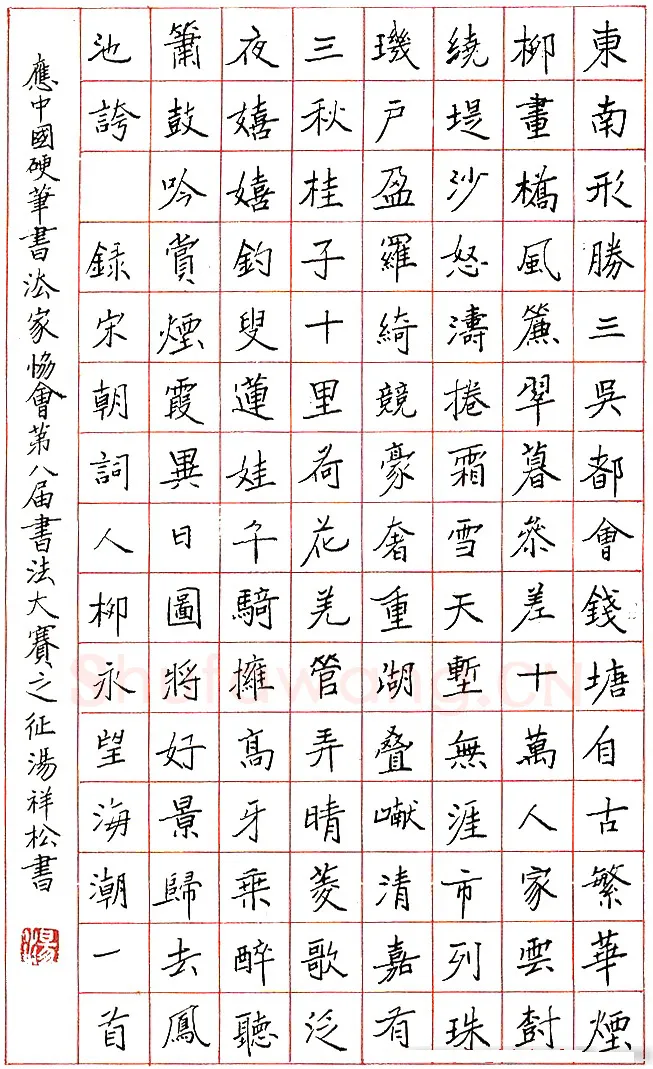 東南形勝三吳都會錢塘自古繁華煙
柳畫橋風簾翠暮叅差十萬人家雲樹
繞堤沙怒濤捲霜雪天塹無涯市列珠
璣户盈羅綺競豪奢重湖疊巘清嘉有
三秋桂子十里荷花羌管弄晴菱歌泛
夜嬉嬉釣叟蓮娃千騎擁高牙乘醉聽
簫鼓吟賞煙霞異日圖將好景歸去鳳
池誇 録宋朝詞人柳永望海潮一首
應中國硬筆書法家協會第八届書法大賽之征湯祥松書
湯
Shufawang.CN